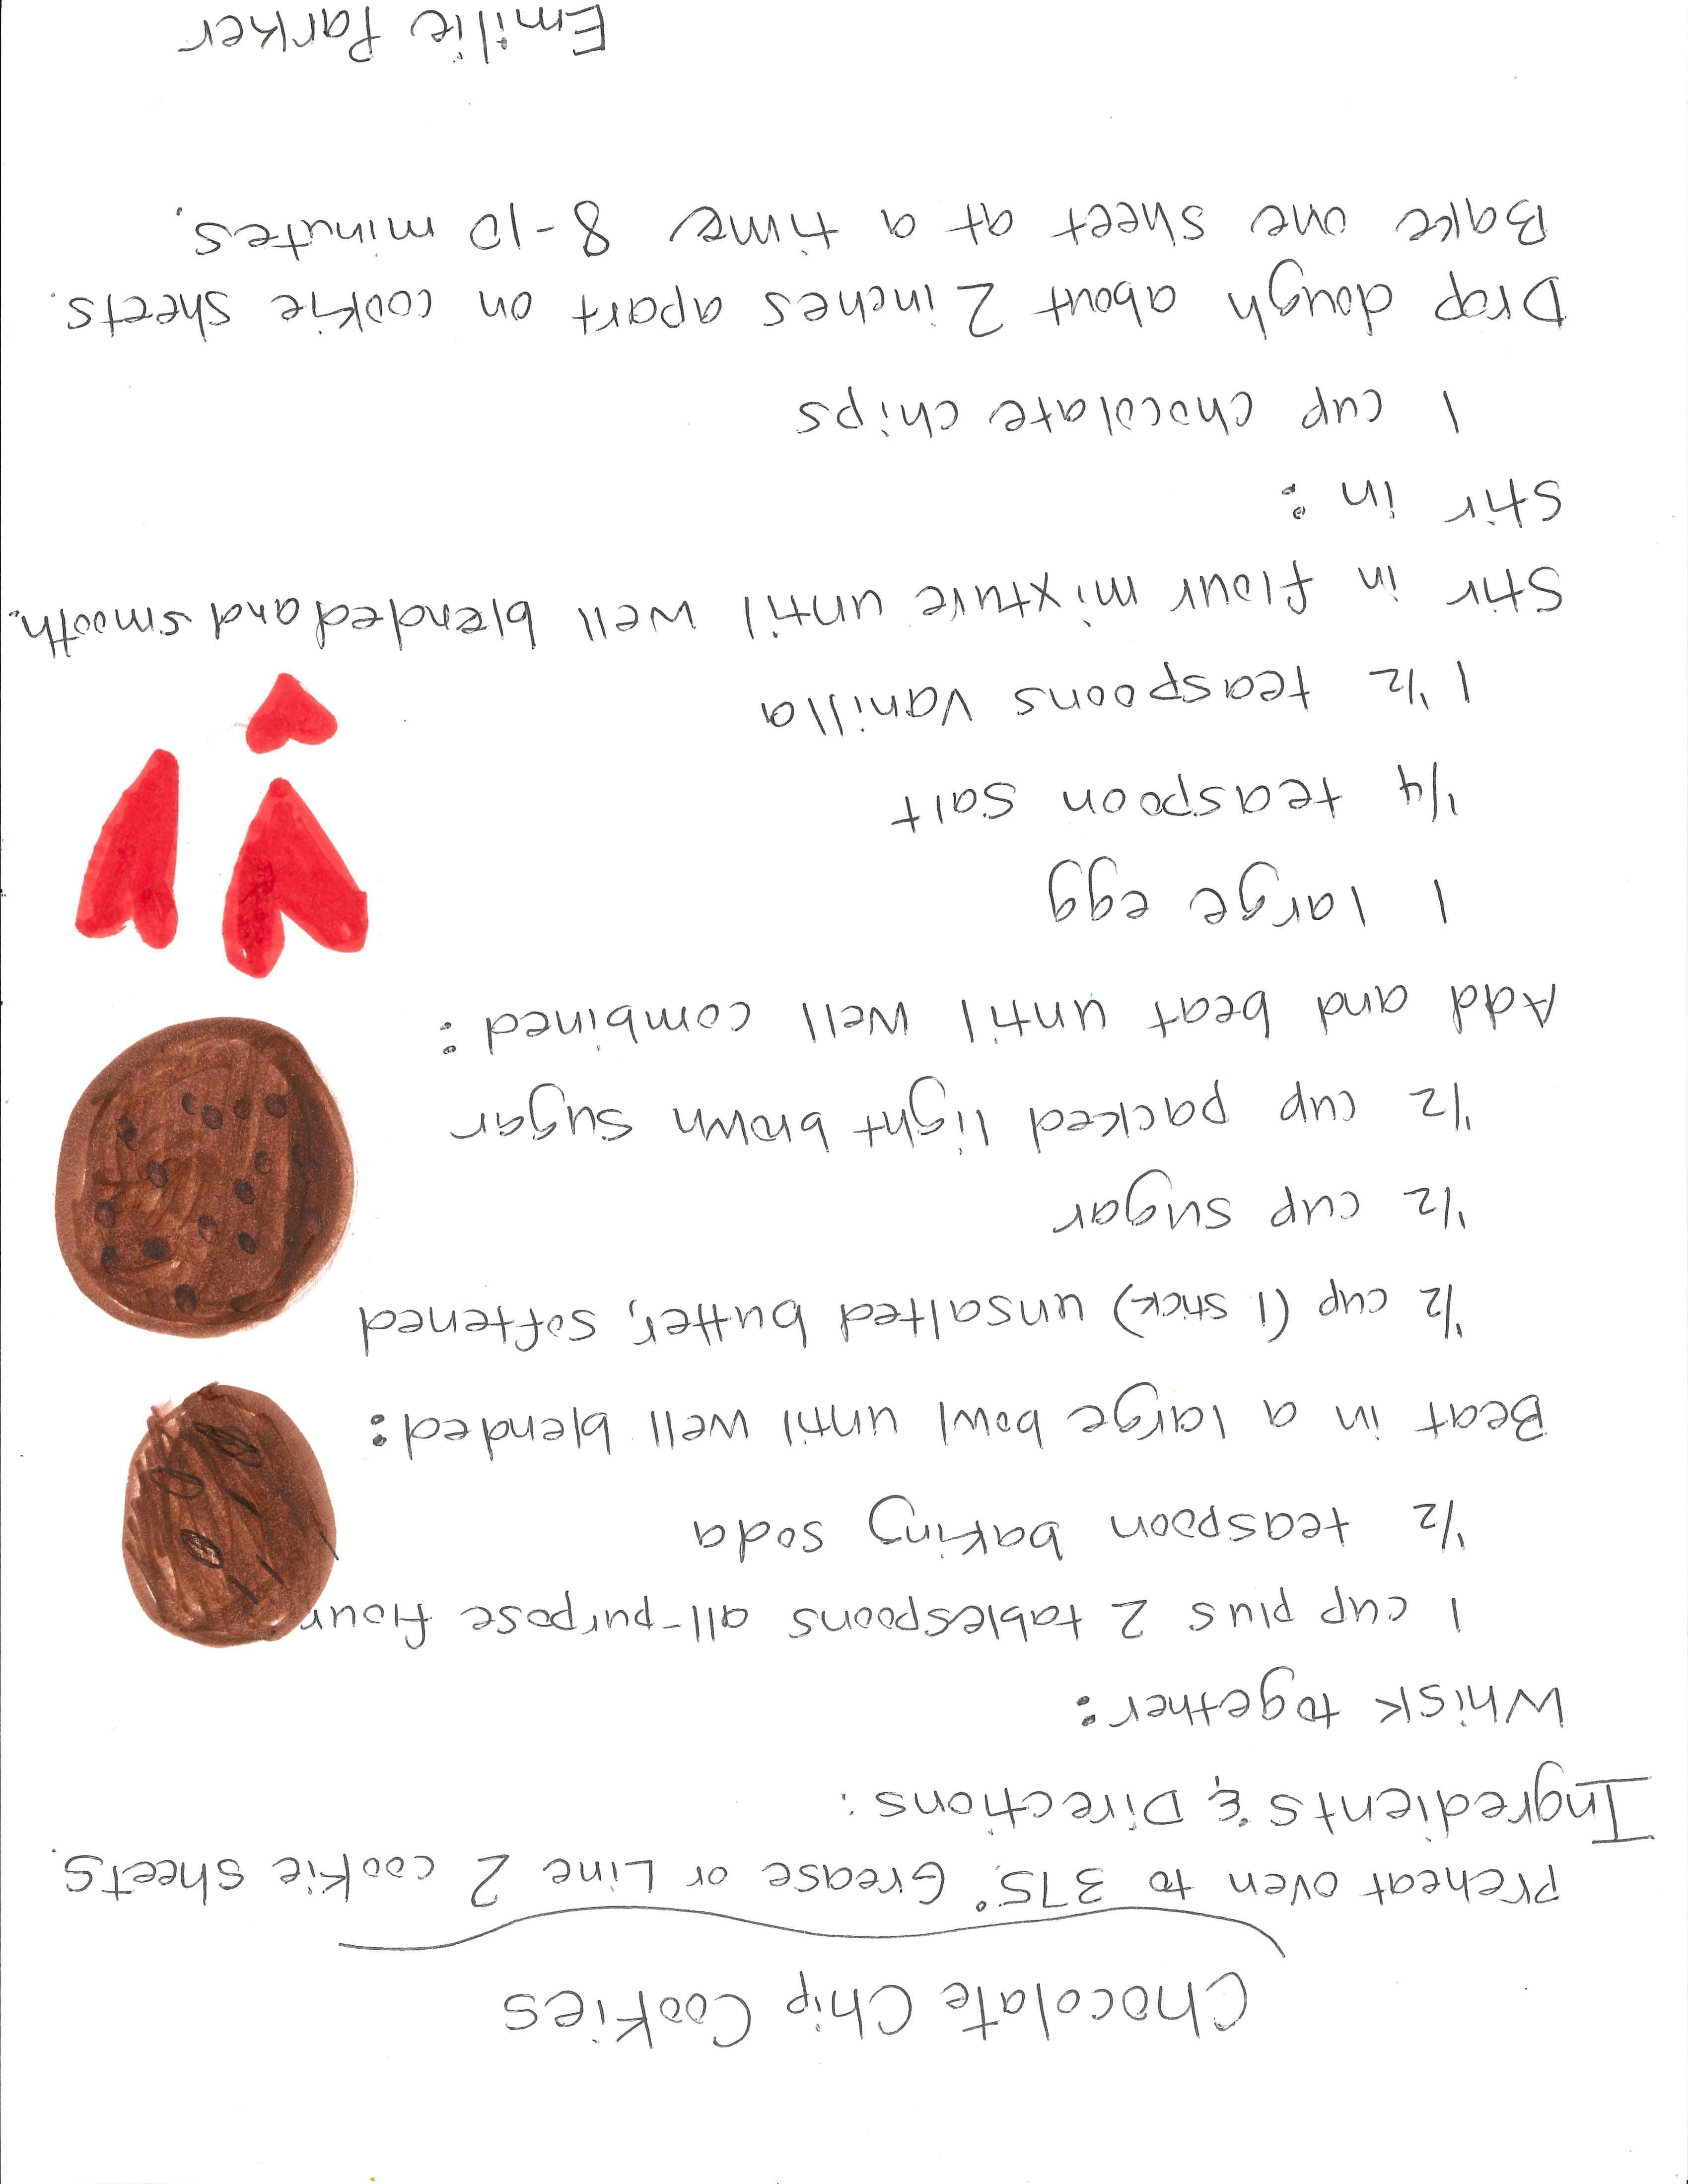 Chocolate Chip Cookies
Preheat oven to 375°. Grease or Line 2 cookie sheets.
Ingredients & Directions:
Whisk together:
1 cup plus 2 tablespoons all-purpose flour
1/2 teaspoon baking soda
Beat in a large bowl until well blended:
1/2 cup (1 stick) unsalted butter, softened
1/2 cup sugar
1/2 cup packed light brown sugar
Add and beat until well combined:
1 large egg
1/4 teaspoon salt
1 1/2 teaspoons vanilla
Stir in flour mixture until well blended and smooth.
Stir in:
1 cup chocolate chips
Drop dough about 2 inches apart on cookie sheets.
Bake one sheet at a time 8-10 minutes.
Emilie Parker